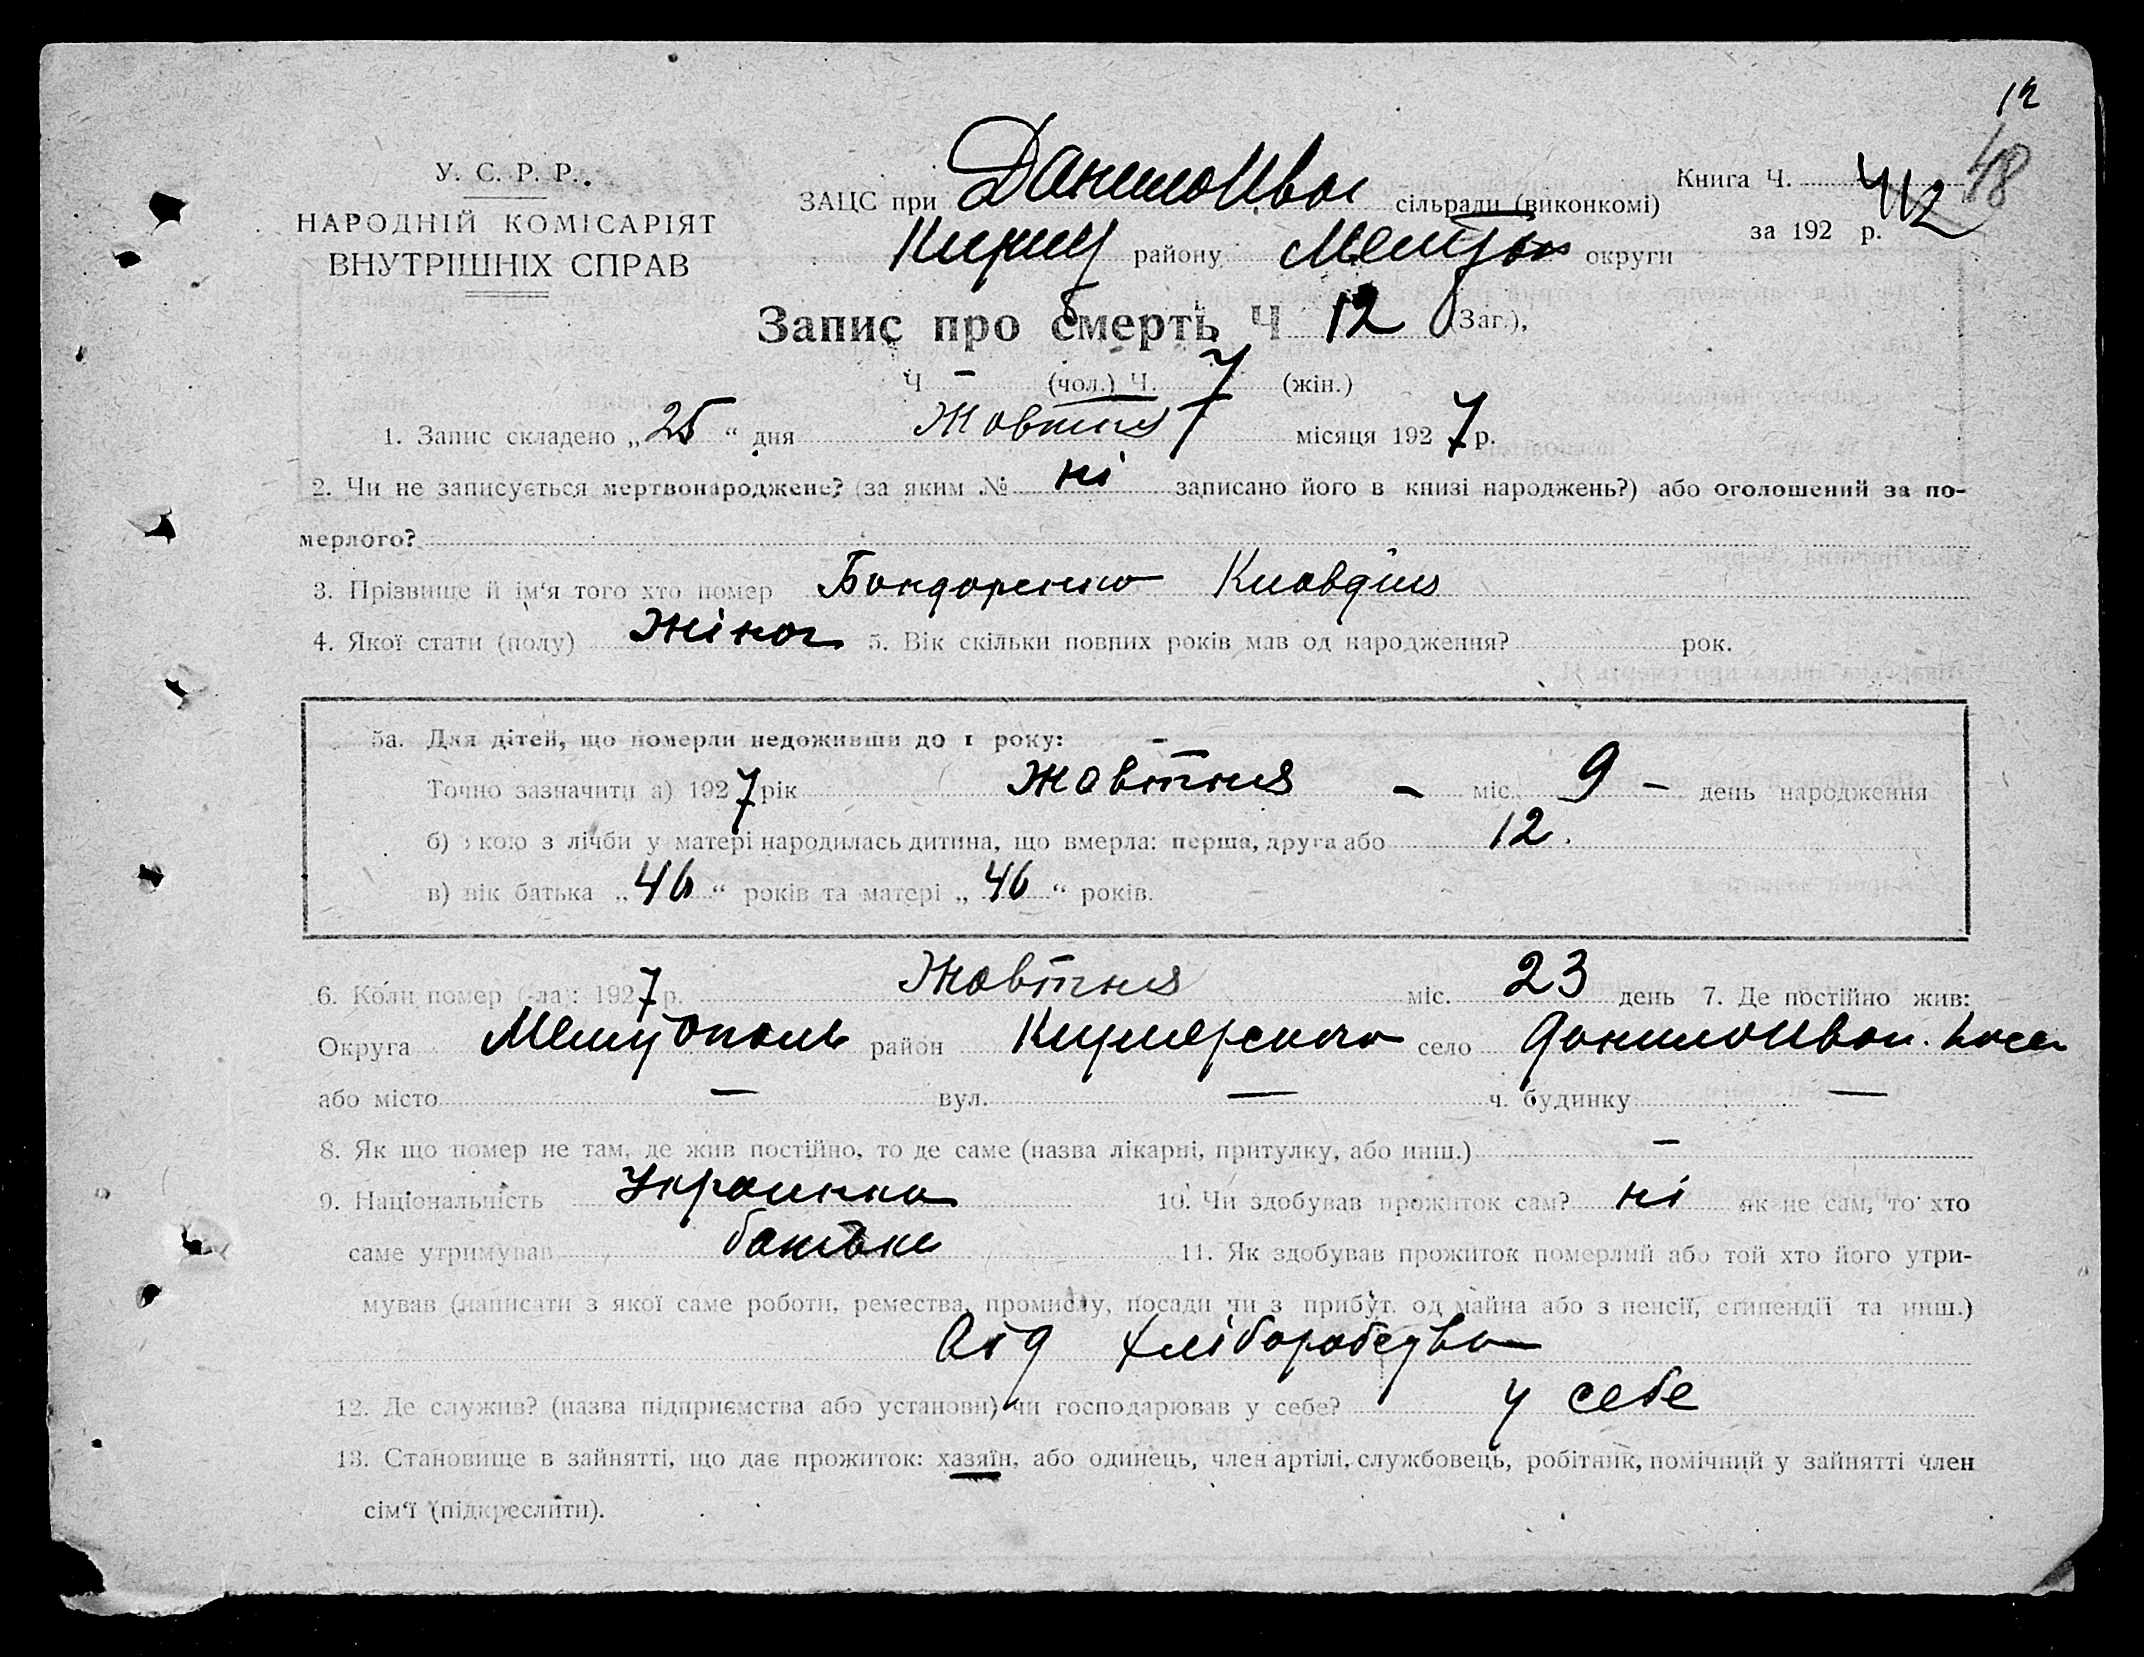 12
У. С. Р. Р.
НАРОДНІЙ КОМІСАРІЯТ
ВНУТРІШНІХ СПРАВ
ЗАЦС при ДанилоІвон сільради (виконкомі)
Книга Ч. 48
412
за 192 р.
Кирил району Меліт округи
Запис про смерть Ч 12 (Заг.),
Ч – (чол.) Ч. 7 (жін.)
1. Запис складено „25“ дня Жовтня місяця 1927 р.
2. Чи не записується мертвонароджене? (за яким № ні записано його в книзі народжень?) або оголошений за по-
мерлого?
3. Прізвище й ім'я того хто помер Бондаренко Клавдія
4. Якої стати (полу) Жіноч 5. Вік скільки повних років мав од народження? рок.
5а. Для дітей, що померли недоживши до 1 року: –
Точно зазначити а) 1927 рік Жовтня – міс. 9 – день народження
б) якою з лічби у матері народилась дитина, що вмерла: перша, друга або 12.
в) вік батька „46“ років та матері „46“ років.
6. Коли помер (-ла): 1927 р. Жовтня міс. 23 день 7. Де постійно жив:
Округа Мелітополь район село ДанилоІван.
або місто — вул. — ч. будинку —
8. Як що помер не там, де жив постійно, то де саме (назва лікарні, притулку, або инш.) –
9. Національність Украинка 10. Чи здобував прожиток сам? ні як не сам, то хто
саме утримував батьки 11. Як здобував прожиток померлий або той хто його утри-
мував (написати з якої саме роботи, ремества, промислу, посади чи з прибут. од майна або з пенсії, стипендії та инш.)
Від хліборобства
12. Де служив? (назва підприємства або установи) чи господарював у себе? у себе
13. Становище в зайнятті, що дає прожиток: хазяїн, або одинець, член артілі, службовець, робітник, помічний у зайнятті член
сім'ї (підкреслити).